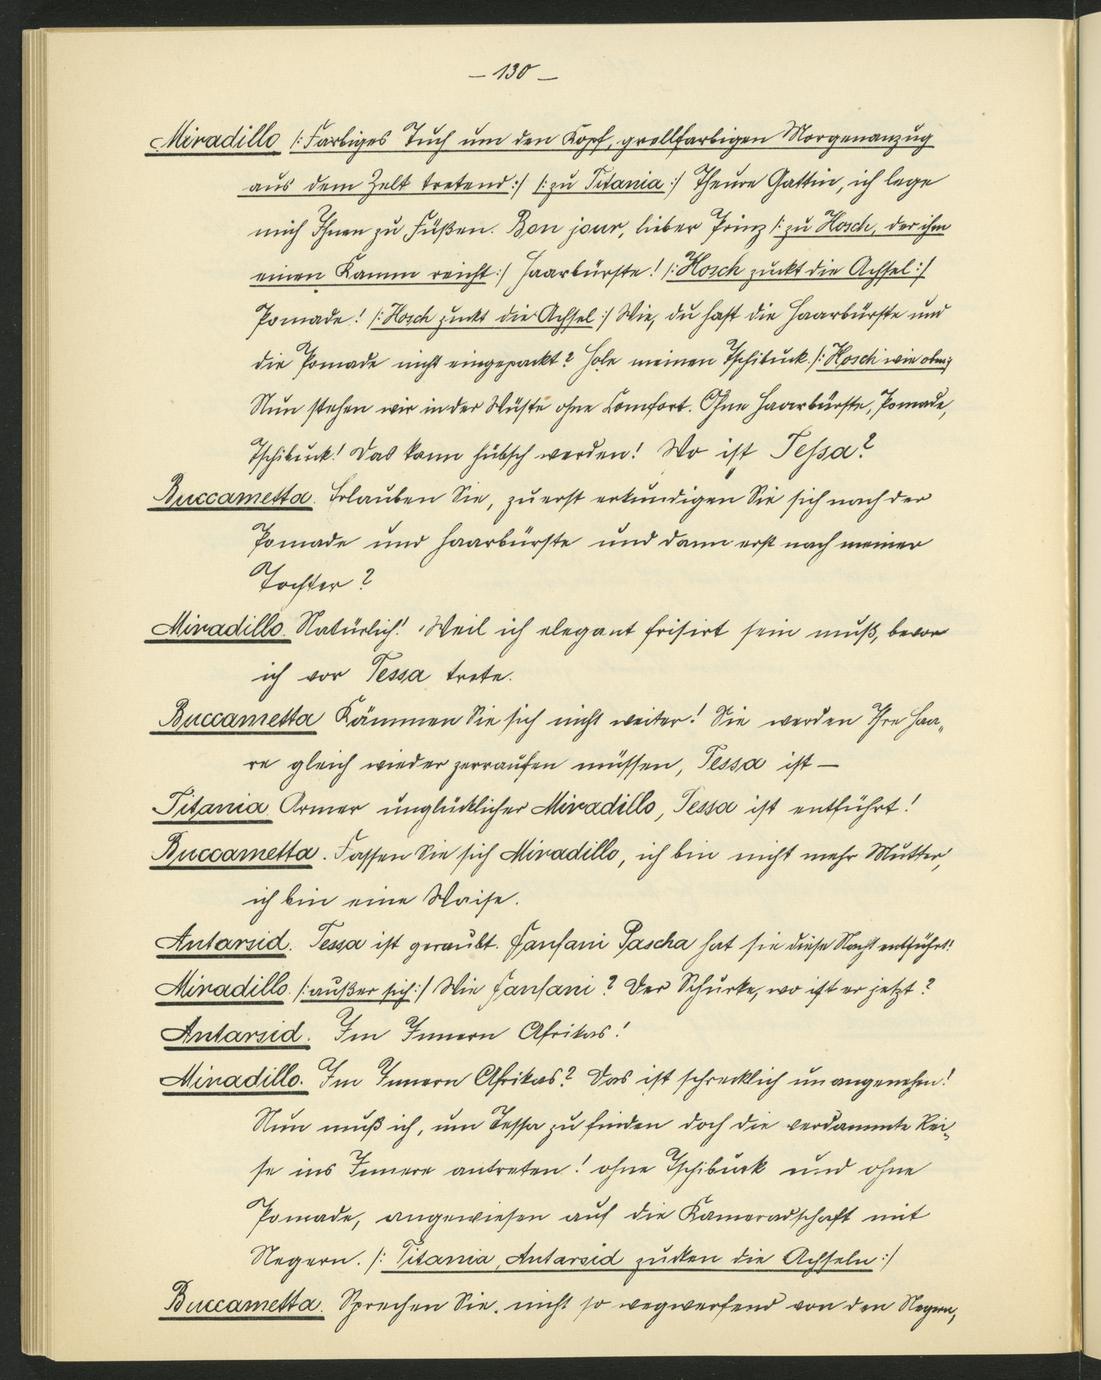 – 130 –
Miradillo /: Farbiges Tuch um den Kopf, grellfarbigen Morgenanzug
aus dem Zelt tretend :/ /: zu Titania :/ Theure Gattin, ich lege
mich Ihnen zu Füßen. Bon jour, lieber Prinz /: zu Hosch, der ihm
einen Kamm reicht :/ Haarbürste! /: Hosch zuckt die Achsel :/
Pomade! /: Hosch zuckt die Achsel :/ Wie, du hast die Haarbürste und
die Pomade nicht eingepackt? Hole meinen Tschibuck. /: Hosch wie oben :/
Nun stehen wir in der Wüste ohne Comfort. Ohne Haarbürste, Pomade,
Tschibuck! Das kann hübsch werden! Wo ist Tessa?
Buccametta. Erlauben Sie, zuerst erkundigen Sie sich nach der
Pomade und Haarbürste und dann erst nach meiner
Tochter?
Miradillo. Natürlich! Weil ich elegant frisirt sein muß, bevor
ich vor Tessa trete.
Buccametta Kämmen Sie sich nicht weiter! Sie werden Ihre Haa„
re gleich wieder zerraufen müssen, Tessa ist —
Titania. Armer unglücklicher Miradillo, Tessa ist entführt!
Buccametta. Fassen Sie sich Miradillo, ich bin nicht mehr Mutter,
ich bin eine Waise.
Antarsid. Tessa ist geraubt. Fanfani Pascha hat sie diese Nacht entführt!
Miradillo. /: außer sich :/ Wie Fanfani? Der Schurke, wo ist er jetzt?
Antarsid. Im Innern Afrikas!
Miradillo. Im Innern Afrikas? Das ist schrecklich unangenehm!
Nun muß ich, um Tessa zu finden doch die verdammte Rei„
se ins Innere antreten! ohne Tschibuck und ohne
Pomade, angewiesen auf die Kameradschaft mit
Negern. /: Titania, Antarsid zucken die Achseln :/
Buccametta. Sprechen Sie nicht so wegwerfend von den Negern,